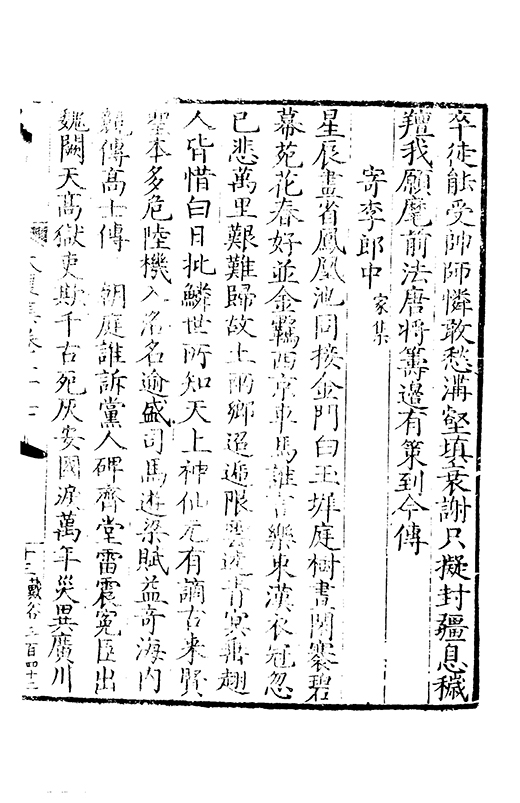 卒徒能受帥師憐敢愁溝壑填衰謝只擬封疆息穢
羶我願麾前法唐將籌邊有策到今傳
寄李郎中 家集
星辰畫省鳳凰池同接金門白玉墀庭樹書閑褰碧
幕苑花春好並金羈西京車馬誰言樂東漢衣冠忽
已悲萬里艱難歸故土兩鄉迢遞限雲逵青冥垂翅
人皆惜白日批鱗世所知天上神仙元有謫古来賢
聖本多危陸機入洛名逾盛司馬遊梁賦益奇海内
競傳高士傳 朝庭誰訴黨人碑齊堂雷震冤臣出
魏闕天高獄吏斯千古死灰安國淚萬年災異廣川
十三 戴谷 三百四十二